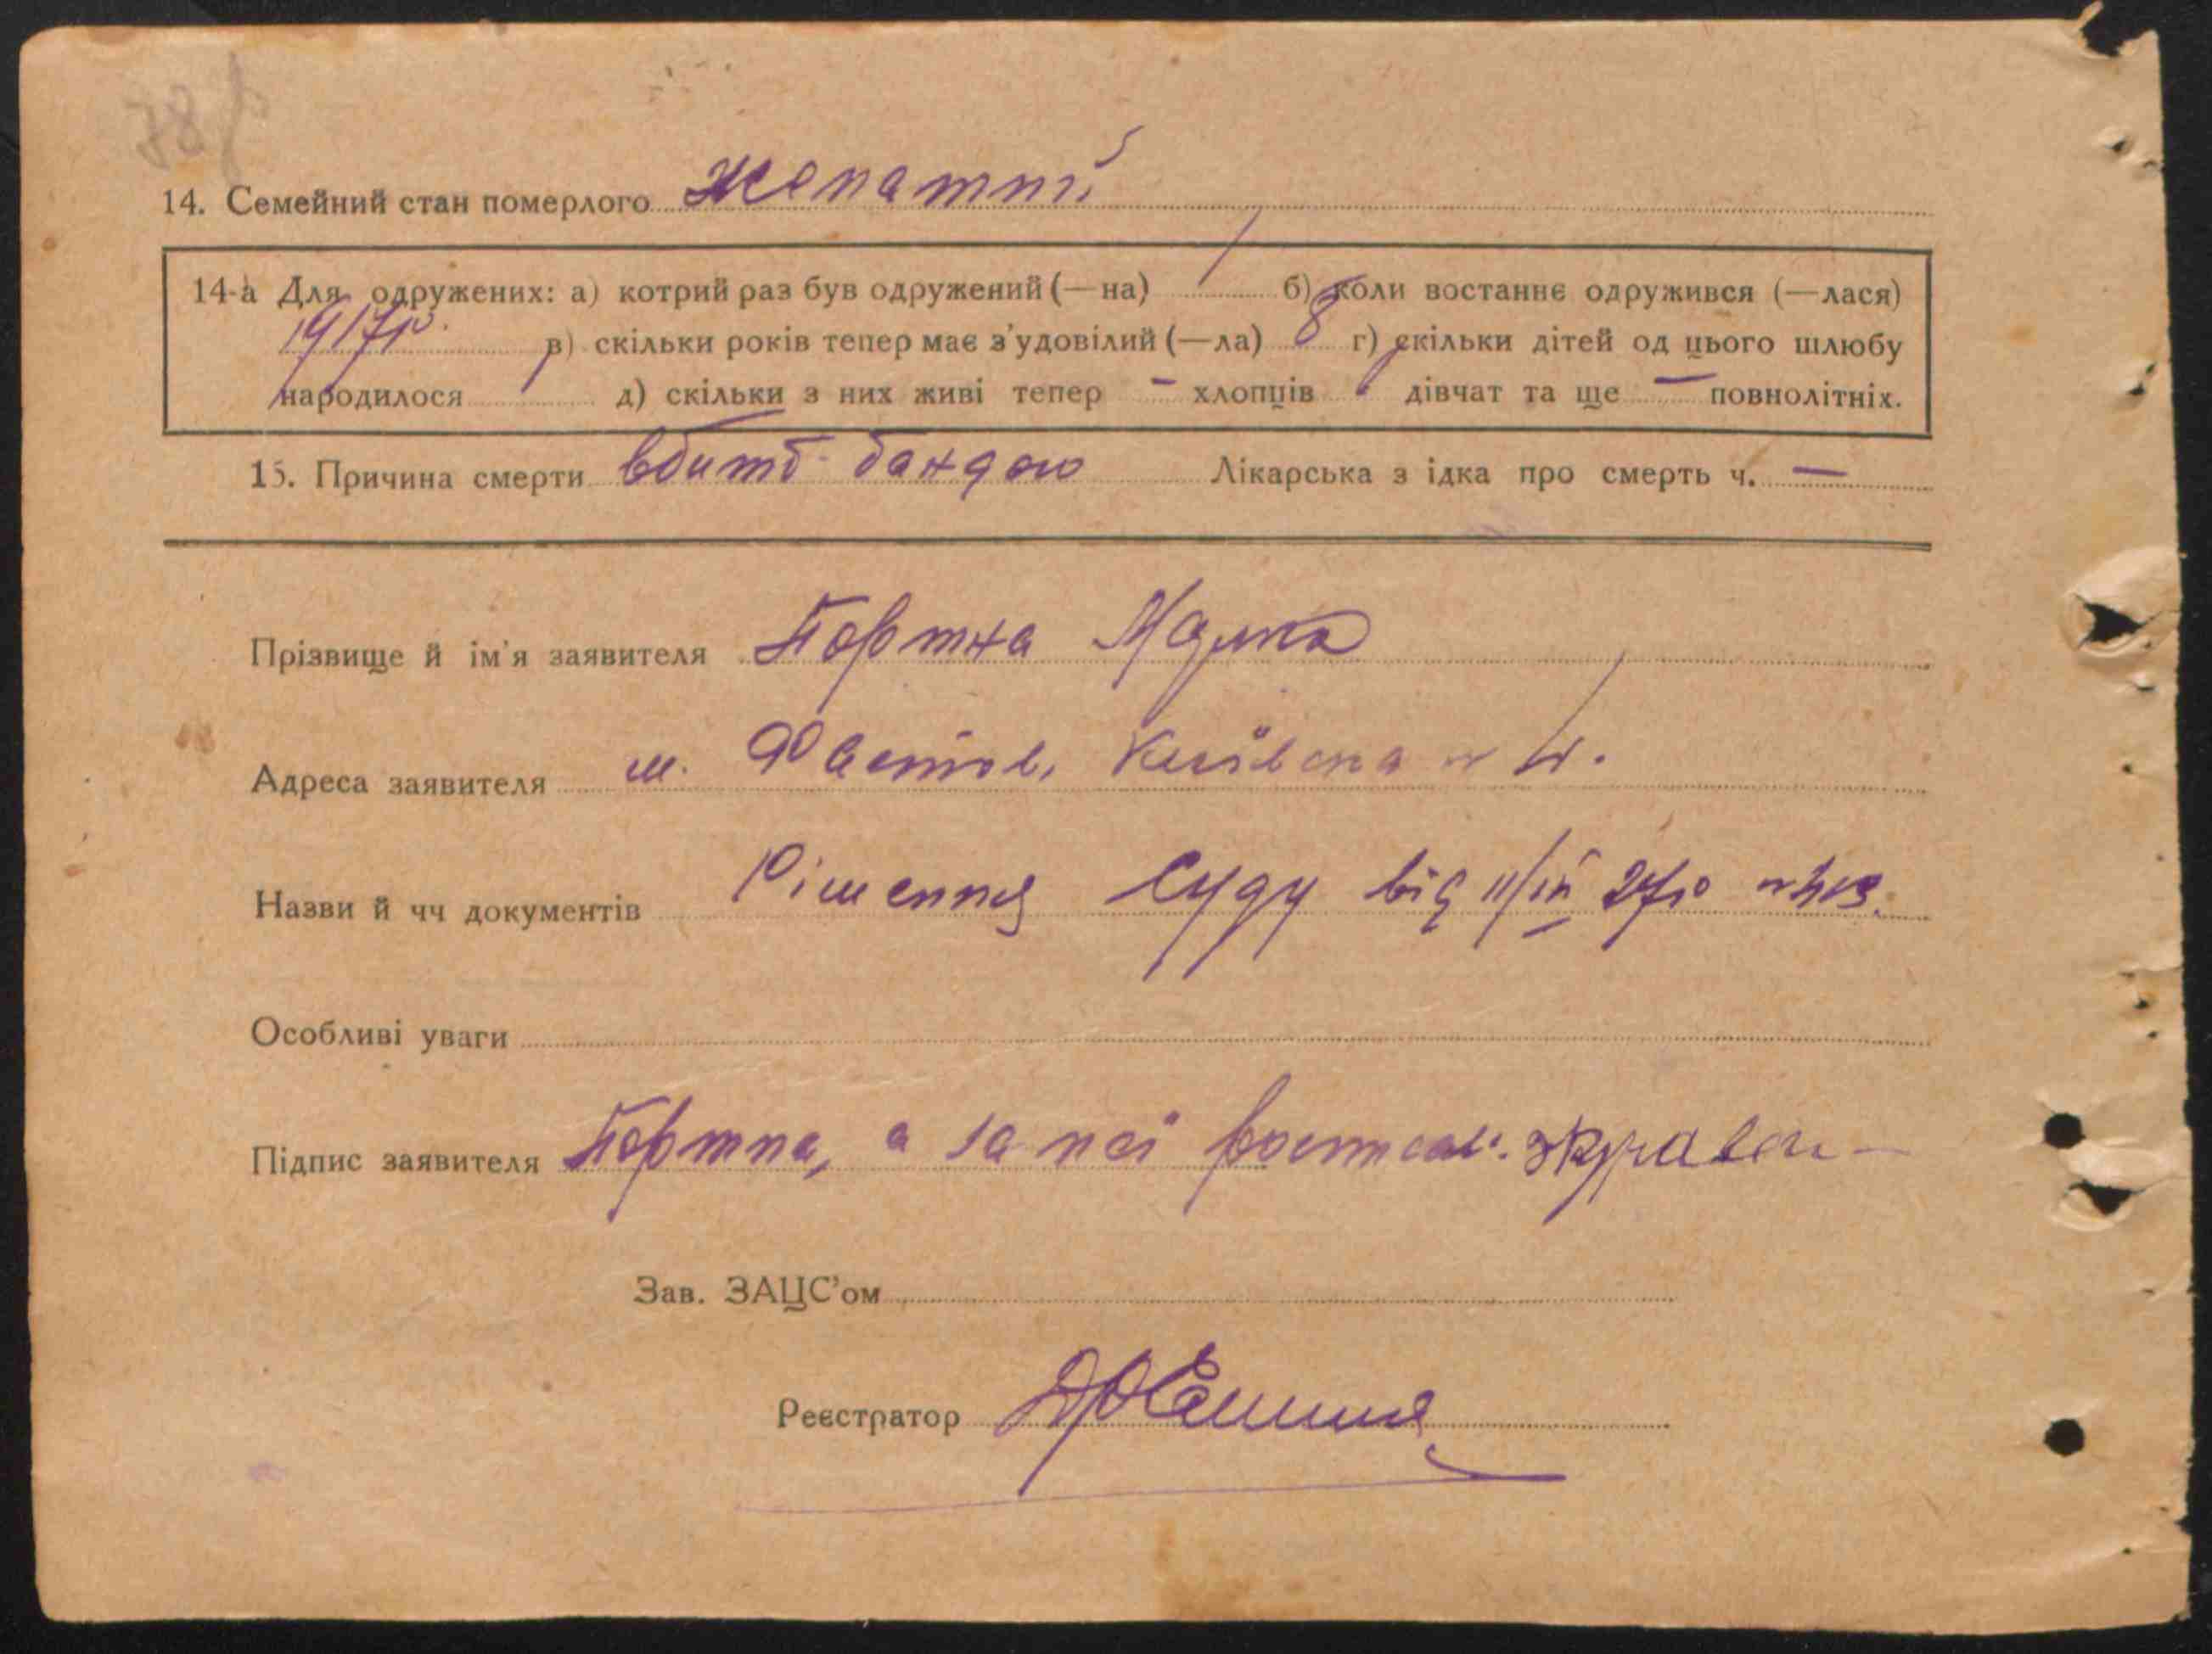 14. Семейний стан померлого жонатий
14-а Для одружених: а) котрий раз був одружений (—на) 1 б) коли востаннє одружився (—лася)
1917р. в) скільки років тепер має з'удовілий (—ла) 8 г) скільки дітей од цього шлюбу
народилося 1 д) скільки з них живі тепер – хлопців 1 дівчат та ще — повнолітніх.
15. Причина смерти вбито бандою Лікарська з ідка про смерть ч. —
Прізвище й ім'я заявителя Портна Малка
Адреса заявителя м. Фастов, Київська
Назви й чч документів Рішення Суду від 27р
Особливі уваги
Підпис заявителя Портна, а за неї
Зав. ЗАЦС'ом
Реєстратор